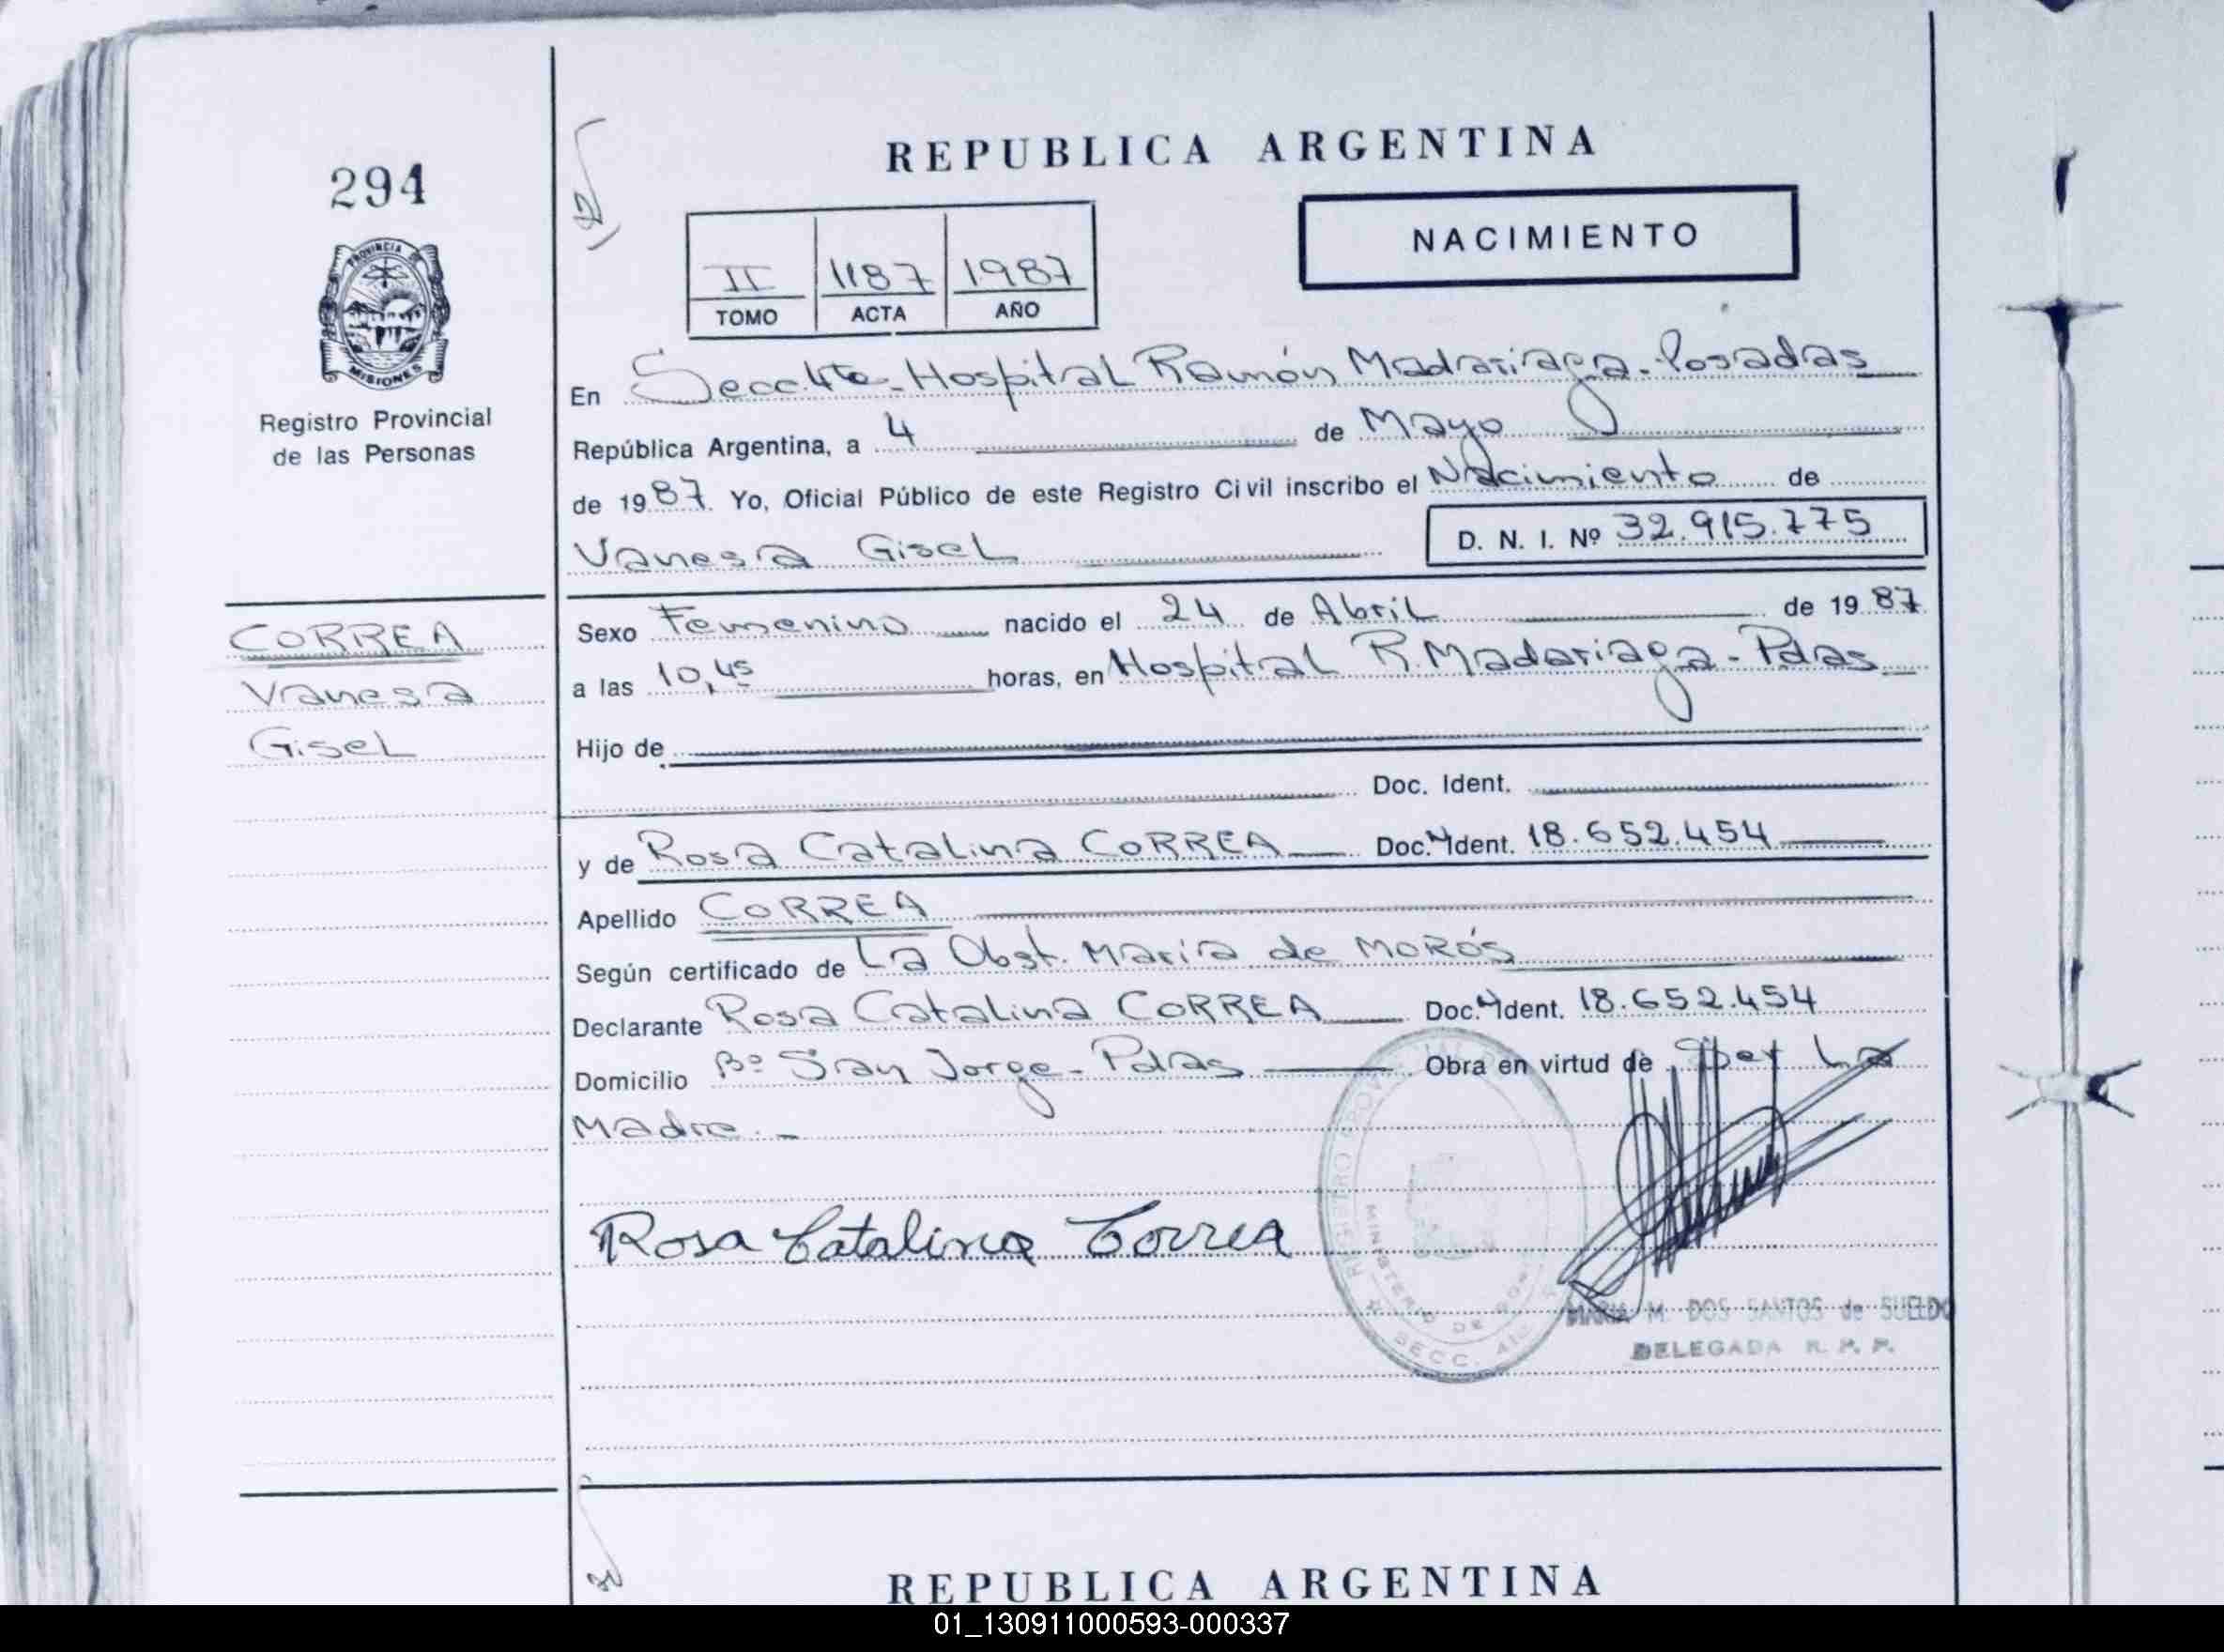 294
PROVINCIA
MISIONES
Registro Provincial
de las Personas
CORREA
Vanesa
Gisel
REPUBLICA ARGENTINA
NACIMIENTO
II 1187 1987
TOMO ACTA AÑO
En Secc 4ta. Hospital Ramón Madariaga. Posadas
República Argentina, a 4 de Mayo
de 1987. Yo, Oficial Público de este Registro Civil inscribo el Nacimiento de
Vanesa Gisel D. N. I. Nº 32.915.775
Sexo Femenino nacido el 24 de Abril de 1987
a las 10,45 horas, en Hospital R. Madariaga - Pdas
Hijo de
Doc. Ident.
y de Rosa Catalina CORREA Doc. Ident. 18.652.454
Apellido CORREA
Según certificado de La Obst. Maria de MORÓS
Declarante Rosa Catalina CORREA Doc. Ident. 18.652.454
Domicilio Bº San Jorge - Pdas Obra en virtud de Ser La
Madre. -
Rosa Catalina Correa
REGISTRO PROV.
MINISTERIO DE GOB.
SECC. 4ta
MARIA M. DOS SANTOS de SUELDO
DELEGADA R. P. P.
REPUBLICA ARGENTINA
01_130911000593-000337